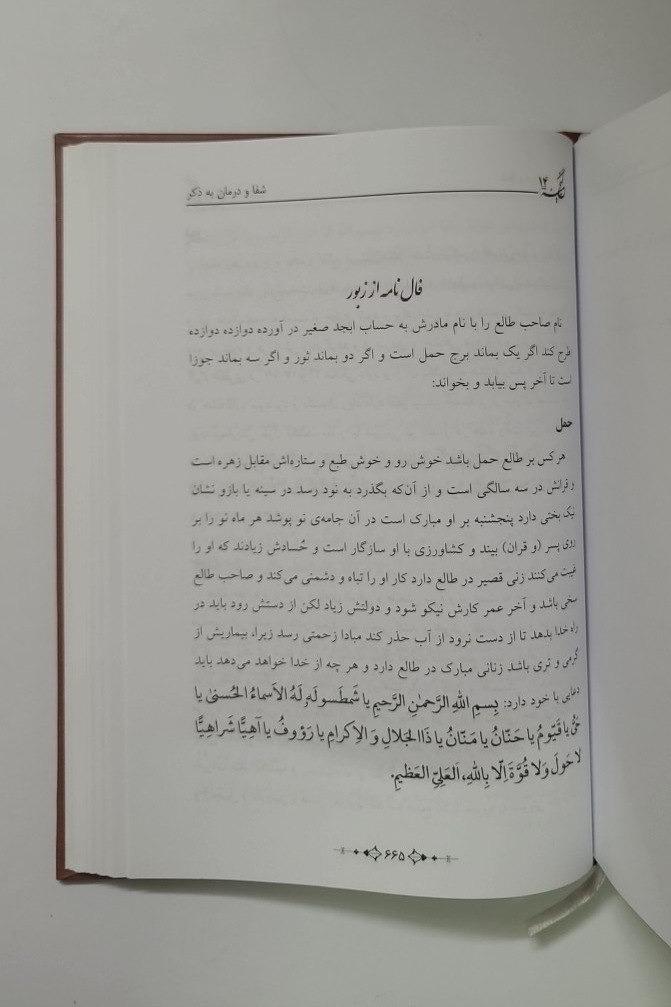 ۱۴
شفا و درمان به ذکر
فال نامه از زبور
نام صاحب طالع را با نام مادرش به حساب ابجد صغیر در آورده دوازده دوازده
طرح کند اگر یک بماند برج حمل است و اگر دو بماند ثور و اگر سه بماند جوزا
است تا آخر پس بیابد و بخواند:
حمل
هر کس بر طالع حمل باشد خوش رو و خوش طبع و ستاره‌اش مقابل زهره است
و قرانش در سه سالگی است و از آن‌که بگذرد به نود رسد در سینه یا بازو نشان
نیک بختی دارد پنجشنبه بر او مبارک است در آن جامه‌ی نو پوشد هر ماه نو را بر
روی پسر (و قران) بیند و کشاورزی با او سازگار است و حُسادش زیادند که او را
غیبت می‌کنند زنی قصیر در طالع دارد کار او را تباه و دشمنی می‌کند و صاحب طالع
سخی باشد و آخر عمر کارش نیکو شود و دولتش زیاد لکن از دستش رود باید در
راه خدا بدهد تا از دست نرود از آب حذر کند مبادا زحمتی رسد زیرا، بیماریش از
گرمی و تری باشد زنانی مبارک در طالع دارد و هر چه از خدا خواهد می‌دهد باید
دعایی با خود دارد: بِسمِ اللهِ الرَّحمنِ الرَّحیمِ یا شَمطَسولَهِ لَهُ الاَسماءُ الحُسنی یا
حَیُّ یا قَیّومُ یا حَنّانُ یا مَنّانُ یا ذَا الجَلالِ وَ الاِکرامِ یا رَؤوفُ یا آهِیًّا شَراهِیًّا
لا حَولَ وَلا قُوَّةَ اِلّا بِاللهِ، اَلعَلِیِّ العَظیمِ.
۶۶۵